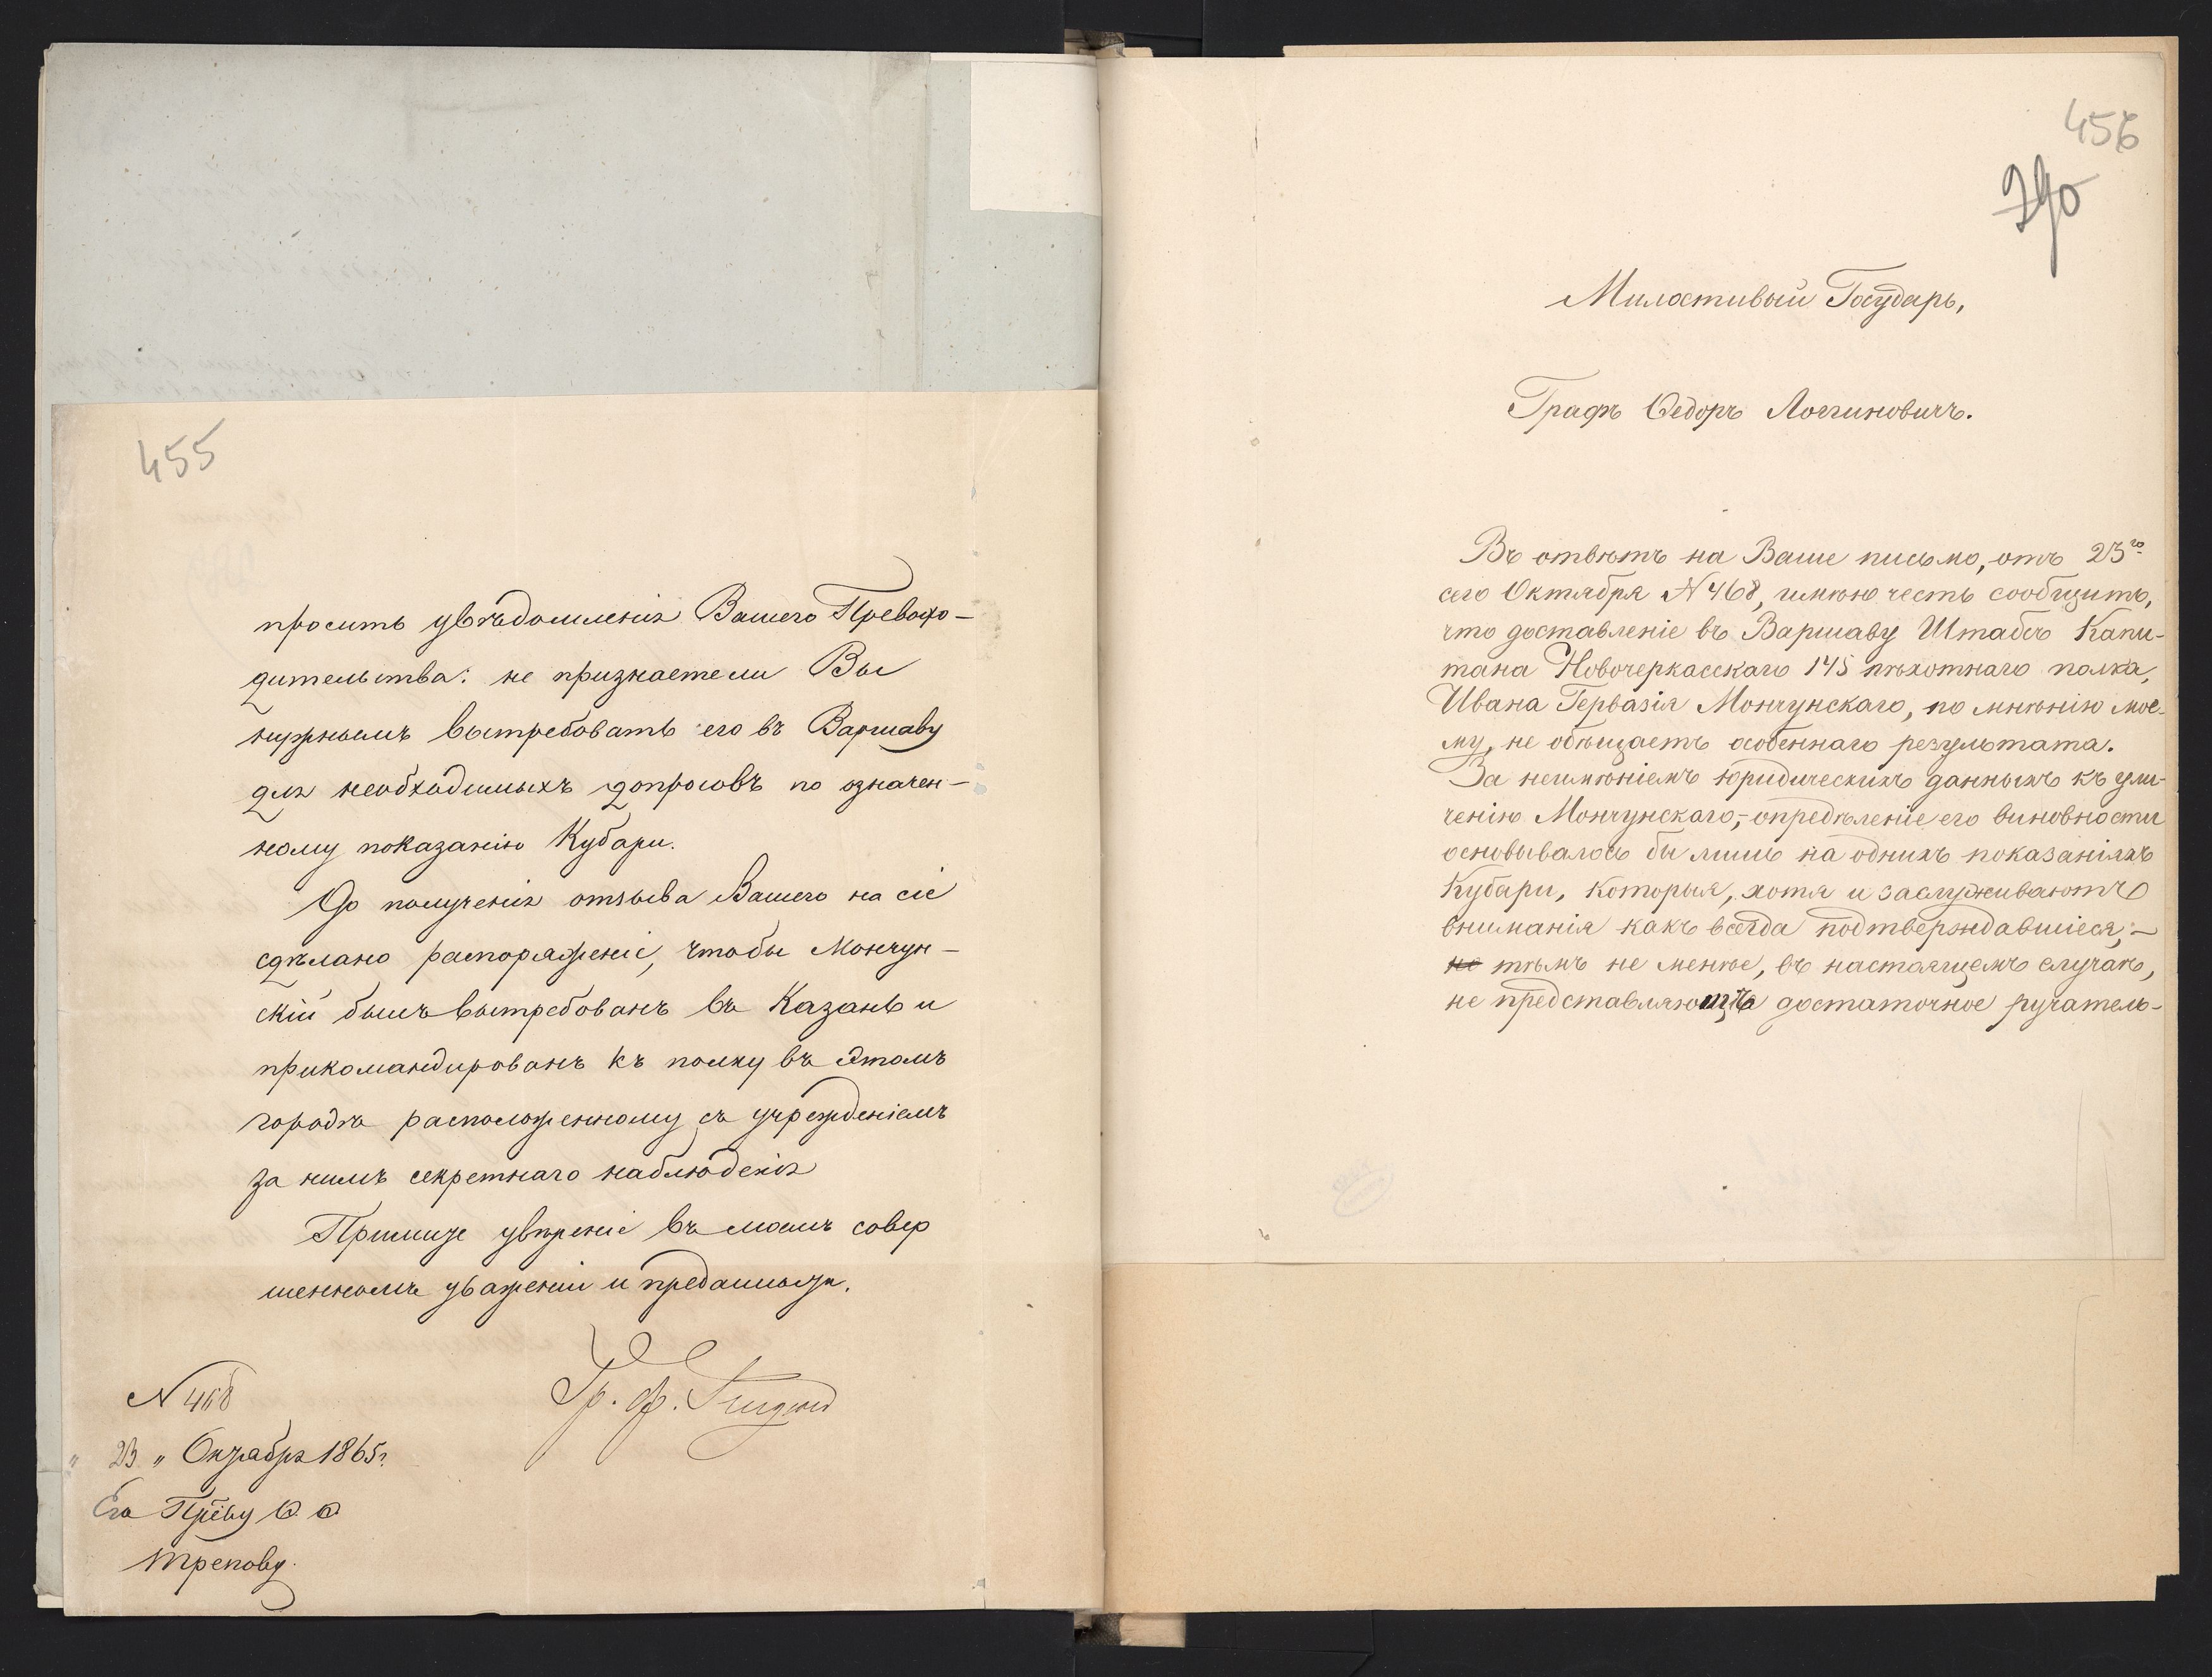 455
просить увѣдомленія Вашего Превосхо-
дительства: не признаете ли Вы
нужнымъ вытребовать его въ Варшаву
для необходимыхъ допросовъ по означен-
ному показанію Кубари.
До полученія отзыва Вашего на сіе
сдѣлано распоряженіе, чтобы Мончун-
скій былъ вытребованъ въ Казань и
прикомандированъ къ полку въ этомъ
городѣ расположенному съ учрежденіемъ
за нимъ секретнаго наблюденія
Примите увѣреніе въ моемъ совер
шенномъ уваженіи и преданности.
Гр. Ф.
N 468
" 23 " Октября 1865 г.
Его Прву Ѳ Ѳ
Трепову.
456
290
Милостивый Государь,
Графъ Ѳедоръ Логгиновичъ.
Въ отвѣтъ на Ваше письмо, отъ 23го
сего Октября N 468, имѣю честь сообщить,
что доставленіе въ Варшаву Штабсъ Капи-
тана Новочеркасскаго 145 пѣхотнаго полка,
Ивана Гервазія Мончунскаго, по мнѣнію мое-
му, не обѣщаетъ особеннаго результата.
За неимѣніемъ юридическихъ данныхъ къ ули-
ченію Мончунскаго, - опредѣленіе его виновности
основывалось бы лишь на однихъ показаніяхъ
Кубари, которыя, хотя и заслуживаютъ
вниманія какъ всегда подтверждавшіеся; -
не тѣмъ не менѣе, въ настоящемъ случаѣ,
не представляютъ достаточное ручатель-